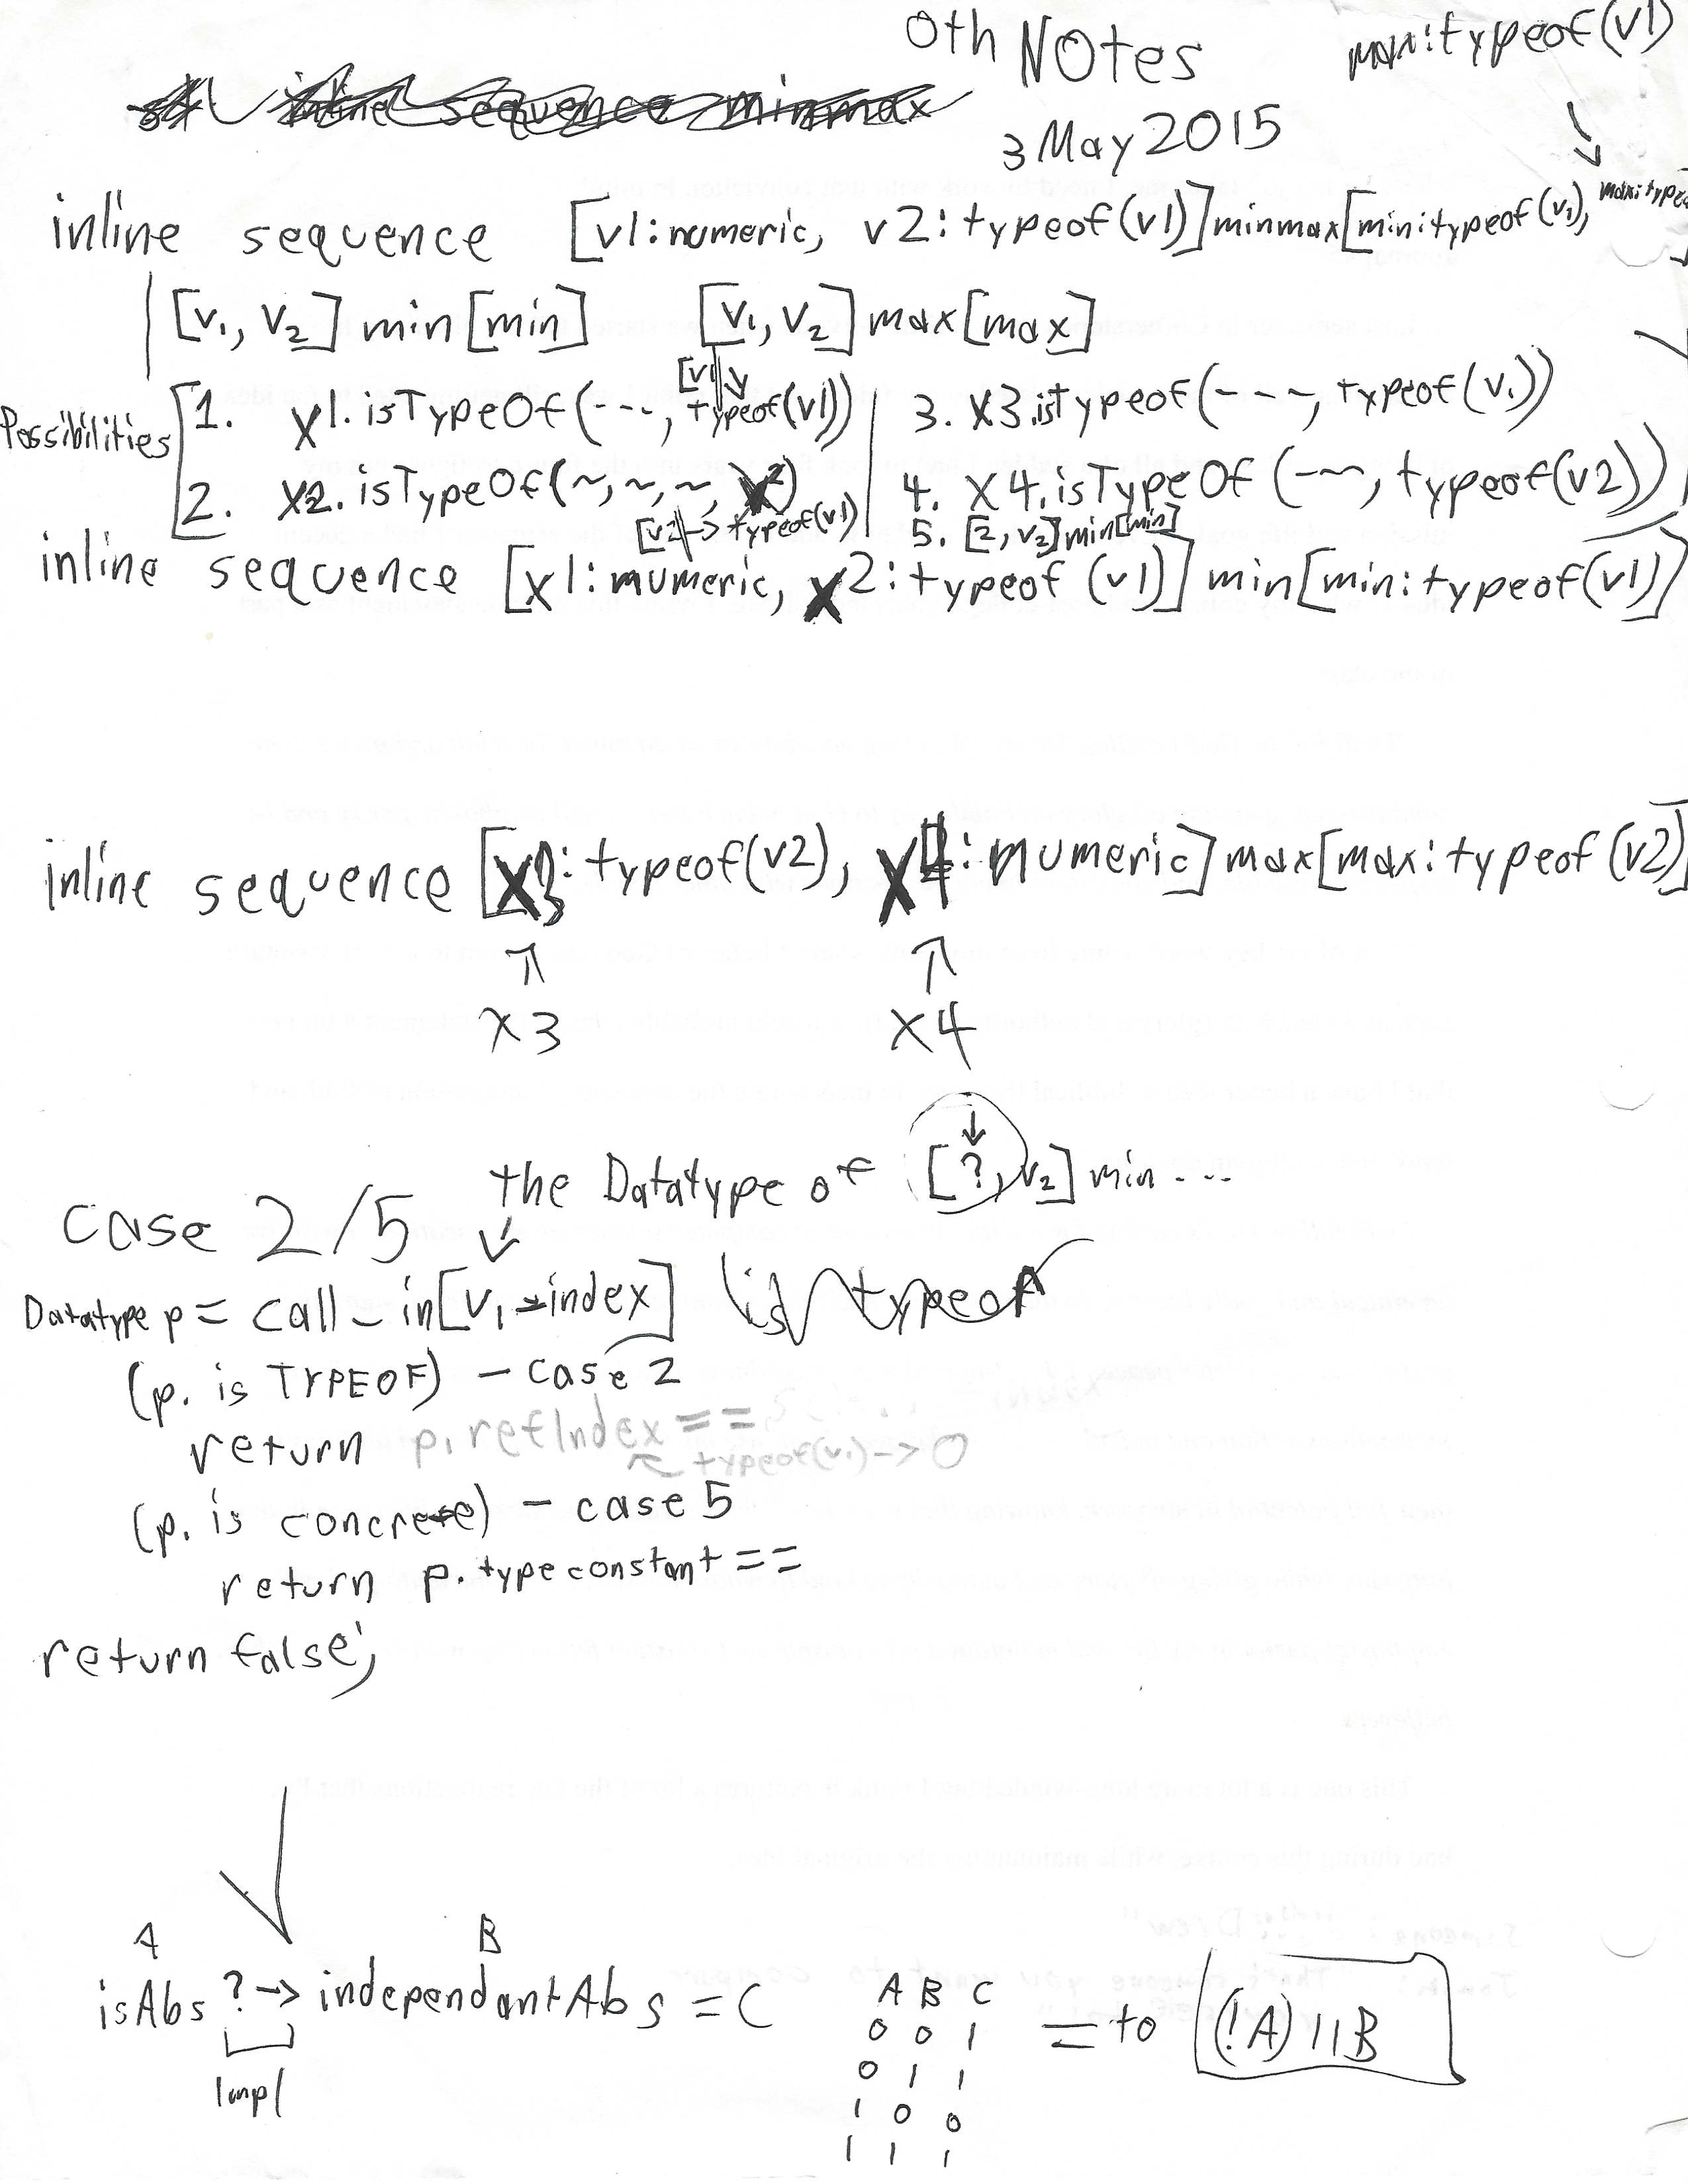 Oth Notes
3 May 2015
max:typeof(v1)
inline sequence minmax
inline sequence [v1:numeric, v2:typeof(v1)]minmax[min:typeof(v1), max:typeo
[v1, v2] min [min] [v1, v2] max [max]
Possibilities
1. X1.isTypeOf(---, typeof(v1))
[v1
2. X2.isTypeOf(~,~,~, X2)
[v2 -> typeof(v1)
3. X3.istypeof(---, typeof(v1))
4. X4.isTypeOf(-~, typeof(v2))
5. [2, v2]min[min]
inline sequence [X1:numeric, X2:typeof(v1)] min[min:typeof(v1)]
inline sequence [X3:typeof(v2), X4:numeric] max[max:typeof(v2)]
↑ ↑
X3 X4
the Datatype of [?, v2] min ...
case 2/5
Datatype p = call-in[v1-index] is typeof
(p. is TYPEOF) - case 2
return p.refIndex ==
typeof(v1) -> 0
(p. is concrete) - case 5
return p.typeconstant ==
return false;
A B
isAbs ? -> independantAbs = C
Impl
A B C
0 0 1
0 1 1
1 0 0
1 1 1
= to (!A)||B